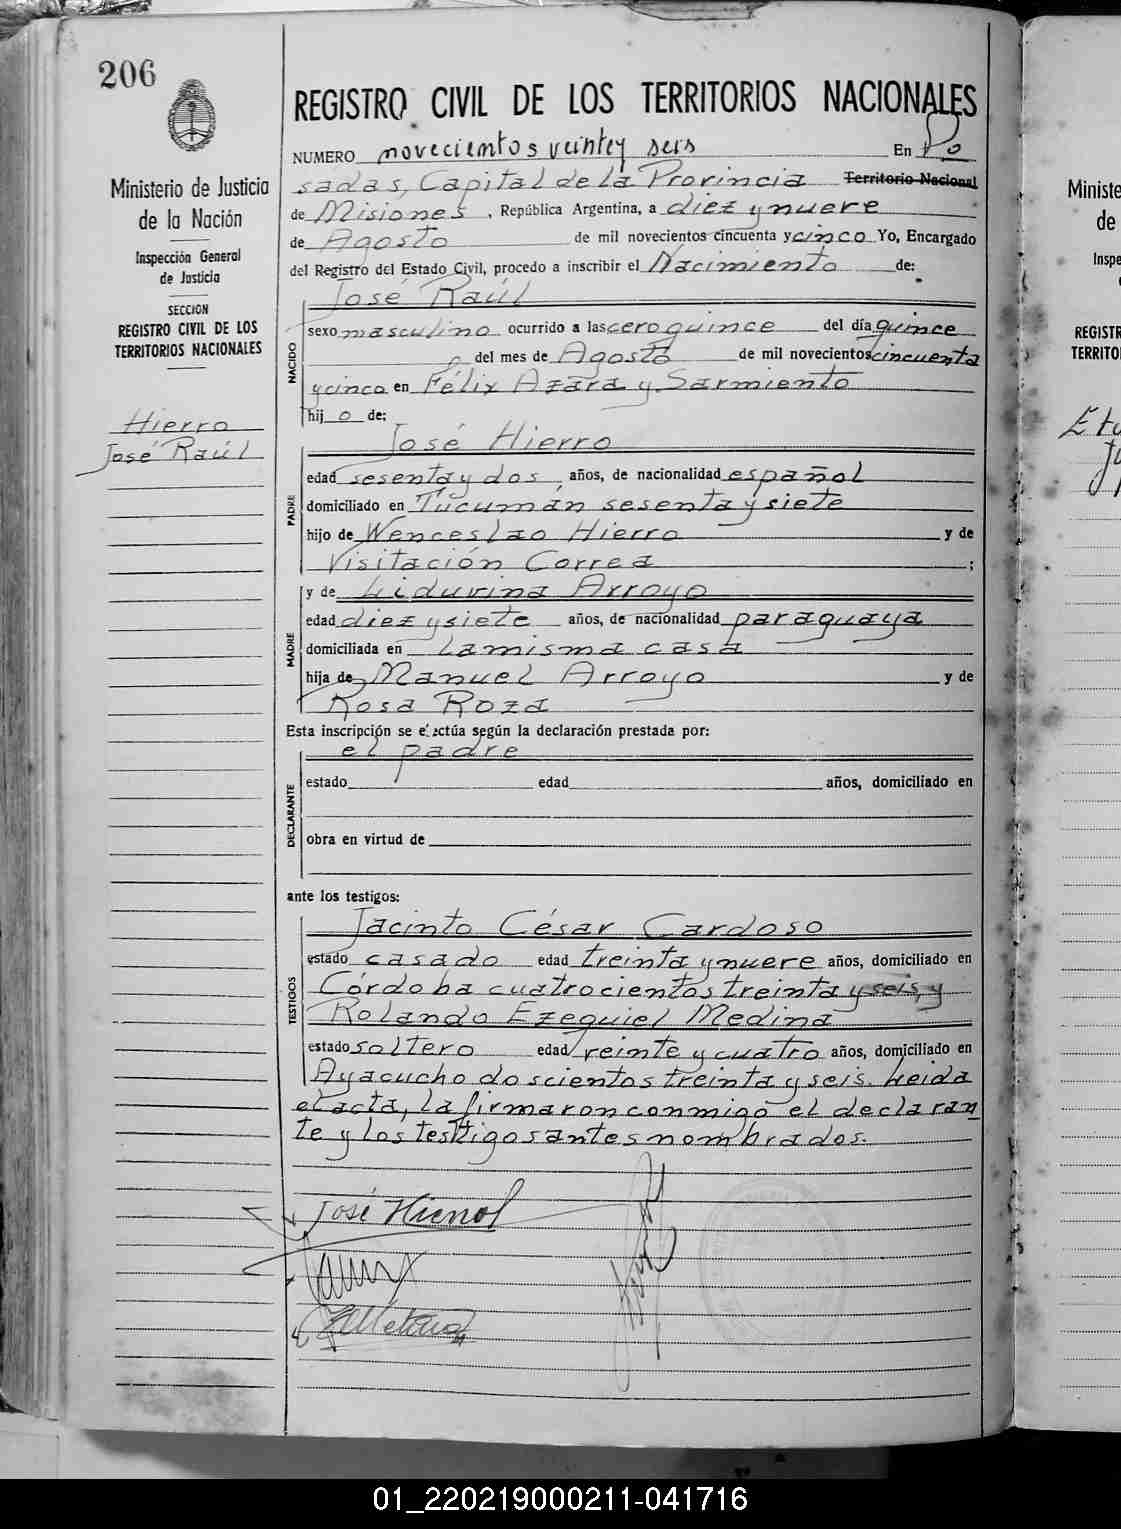 206
Ministerio de Justicia
de la Nación
Inspección General
de Justicia
SECCION
REGISTRO CIVIL DE LOS
TERRITORIOS NACIONALES
Hierro
José Raúl
REGISTRO CIVIL DE LOS TERRITORIOS NACIONALES
NUMERO novecientos veintey seis En Po
sadas, Capital de la Provincia Territorio Nacional
de Misiones, República Argentina, a diez y nueve
de Agosto de mil novecientos cincuenta y cinco Yo, Encargado
del Registro del Estado Civil, procedo a inscribir el Nacimiento de:
NACIDO
José Raúl
sexo masculino ocurrido a las cero quince del día quince
del mes de Agosto de mil novecientos cincuenta
y cinco en Félix Azara y Sarmiento
hijo de:
PADRE
José Hierro
edad sesenta y dos, años, de nacionalidad español
domiciliado en Tucumán sesenta y siete
hijo de Wenceslao Hierro y de
Visitación Correa ;
MADRE
y de Liduvina Arroyo
edad diez y siete años, de nacionalidad paraguaya
domiciliada en La misma casa
hija de Manuel Arroyo y de
Rosa Roza
Esta inscripción se efectúa según la declaración prestada por:
DECLARANTE
el padre
estado edad años, domiciliado en
obra en virtud de
ante los testigos:
TESTIGOS
Jacinto César Cardoso
estado casado edad treinta y nueve años, domiciliado en
Córdoba cuatrocientos treinta y seis, y
Rolando Ezequiel Medina
estado soltero edad veinte y cuatro años, domiciliado en
Ayacucho doscientos treinta y seis. Leida
el acta, la firmaron conmigo el declaran
te y los testigos antes nombrados.
José Hierro
Ministe
de
Inspe
REGISTR
TERRITO
01_220219000211-041716